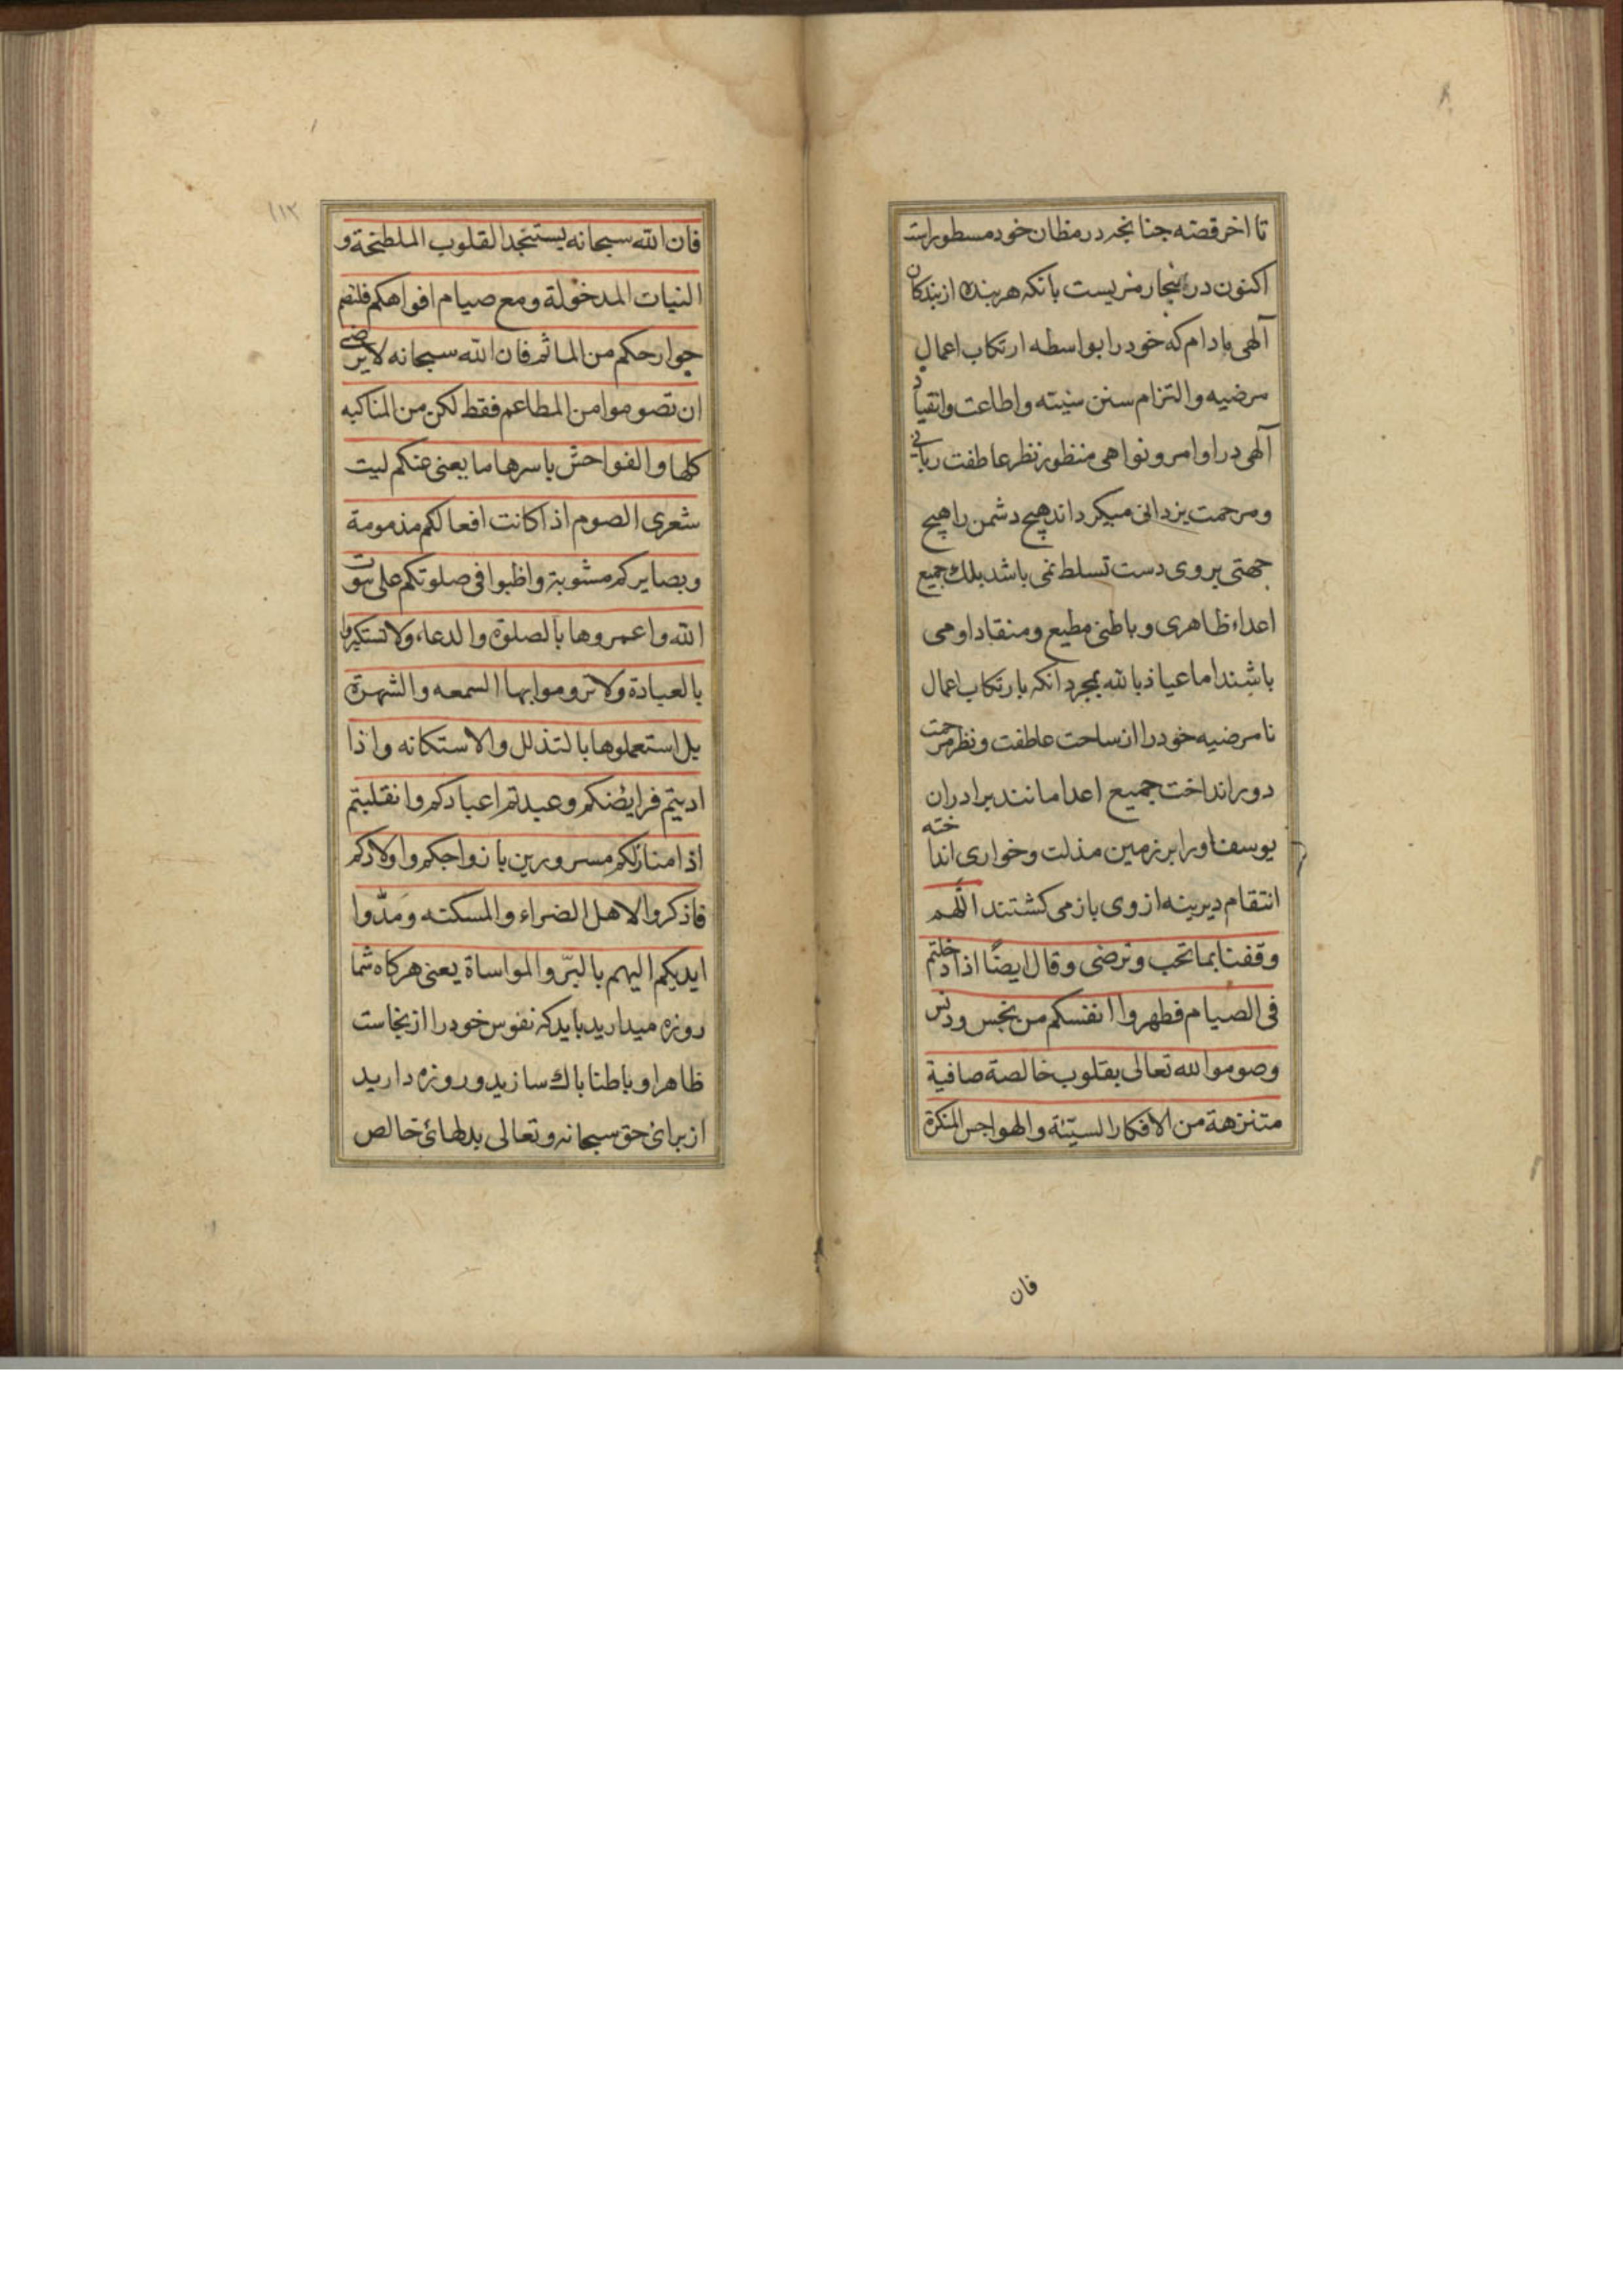 تا اخر قصه جنانجه در مظان خود مسطور است
اکنون در اینجا رمزیست بانکه هر بنده از بندکان
آلهی مادام که خود را بواسطه ارتکاب اعمال
مرضیه والتزام سنن سنیته واطاعت وانقیاد
آلهی در اوامر و نواهی منظور نظر عاطفت ربانی
ومرحمت یزدانی میکرداند هیچ دشمن را هیچ
جهتی بروی دست تسلط نمی باشد بلك جمیع
اعداء ظاهری و باطنی مطیع و منقاد او می
باشند اما عیاذ بالله بمجرد انکه بارتکاب اعمال
نامرضیه خود را از ساحت عاطفت و نظر مرحمت
دور انداخت جمیع اعدا مانند برادران
یوسف اورا بر زمین مذلت وخواری انداخته
انتقام دیرینه از وی باز می کشتند اللّهم
وقفنا بما تحب وترضی وقال ایضًا اذا دخلتم
فی الصیام فطهروا انفسکم من نجس ودنس
وصوموا لله تعالی بقلوب خالصة صافیة
متنزهة من الافکار السیّئة والهواجس المنکرة
فان
١١٢
فان الله سبحانه یستنجد القلوب الملطخة و
النیات المدخولة ومع صیام افواهکم فلتصم
جوارحکم من الماثم فان الله سبحانه لا یرضی
ان تصوموا من المطاعم فقط لکن من المناکیه
کلها والفواحش باسرها ما یعنی عنکم لیت
شعری الصوم اذا کانت افعالکم مذمومة
وبصایرکم مشوبة واظبوا فی صلوتکم علی بیوت
الله واعمروها بالصلوة والدعاء ولا تستکبروا
بالعبادة ولا تروموا بها السمعه والشهرة
بل استعملوها بالتذلل والاستکانه واذا
ادیتم فرایضکم وعیدتم اعیادکم وانقلبتم
اذا منازلکم مسرورین بازواجکم واولادکم
فاذکروا لاهل الضراء والمسکنه ومدّوا
ایدیکم الیهم بالبرّ والمواساة یعنی هرکاه شما
روزه میدارید باید که نفوس خود را از نجاست
ظاهرا و باطنا باك سازید و روزه دارید
از برائ حق سبحانه وتعالی بدلهائ خالص